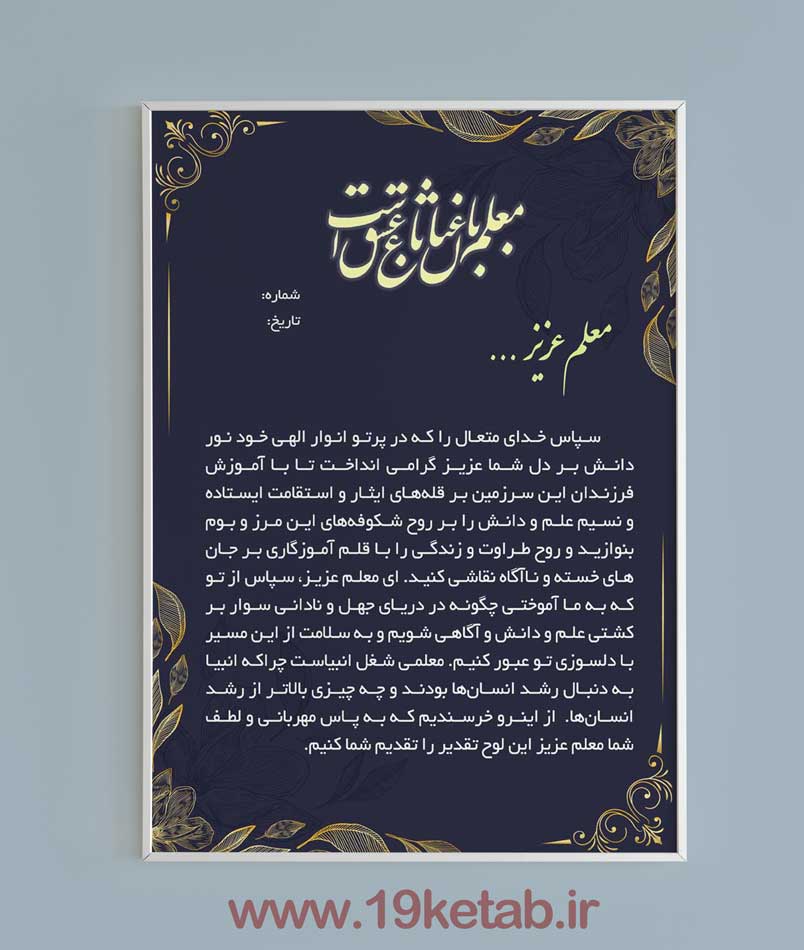 معلم باغبان باغ عشق است
شماره:
تاریخ:
معلم عزیز ...
سپاس خدای متعال را که در پرتو انوار الهی خود نور
دانش بر دل شما عزیز گرامی انداخت تا با آموزش
فرزندان این سرزمین بر قله‌های ایثار و استقامت ایستاده
و نسیم علم و دانش را بر روح شکوفه‌های این مرز و بوم
بنوازید و روح طراوت و زندگی را با قلم آموزگاری بر جان
های خسته و ناآگاه نقاشی کنید. ای معلم عزیز، سپاس از تو
که به ما آموختی چگونه در دریای جهل و نادانی سوار بر
کشتی علم و دانش و آگاهی شویم و به سلامت از این مسیر
با دلسوزی تو عبور کنیم. معلمی شغل انبیاست چراکه انبیا
به دنبال رشد انسان‌ها بودند و چه چیزی بالاتر از رشد
انسان‌ها. از اینرو خرسندیم که به پاس مهربانی و لطف
شما معلم عزیز این لوح تقدیر را تقدیم شما کنیم.
www.19ketab.ir